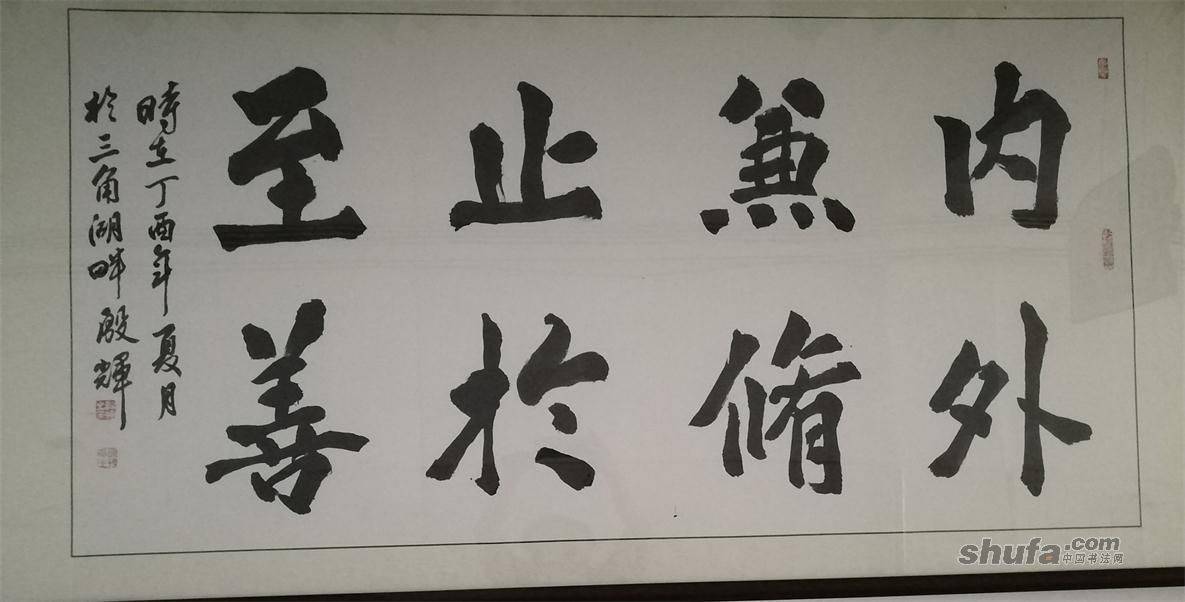 内外
兼脩
止於
至善
時在丁酉年夏月
於三角湖畔殷輝
shufa.com
中国书法网